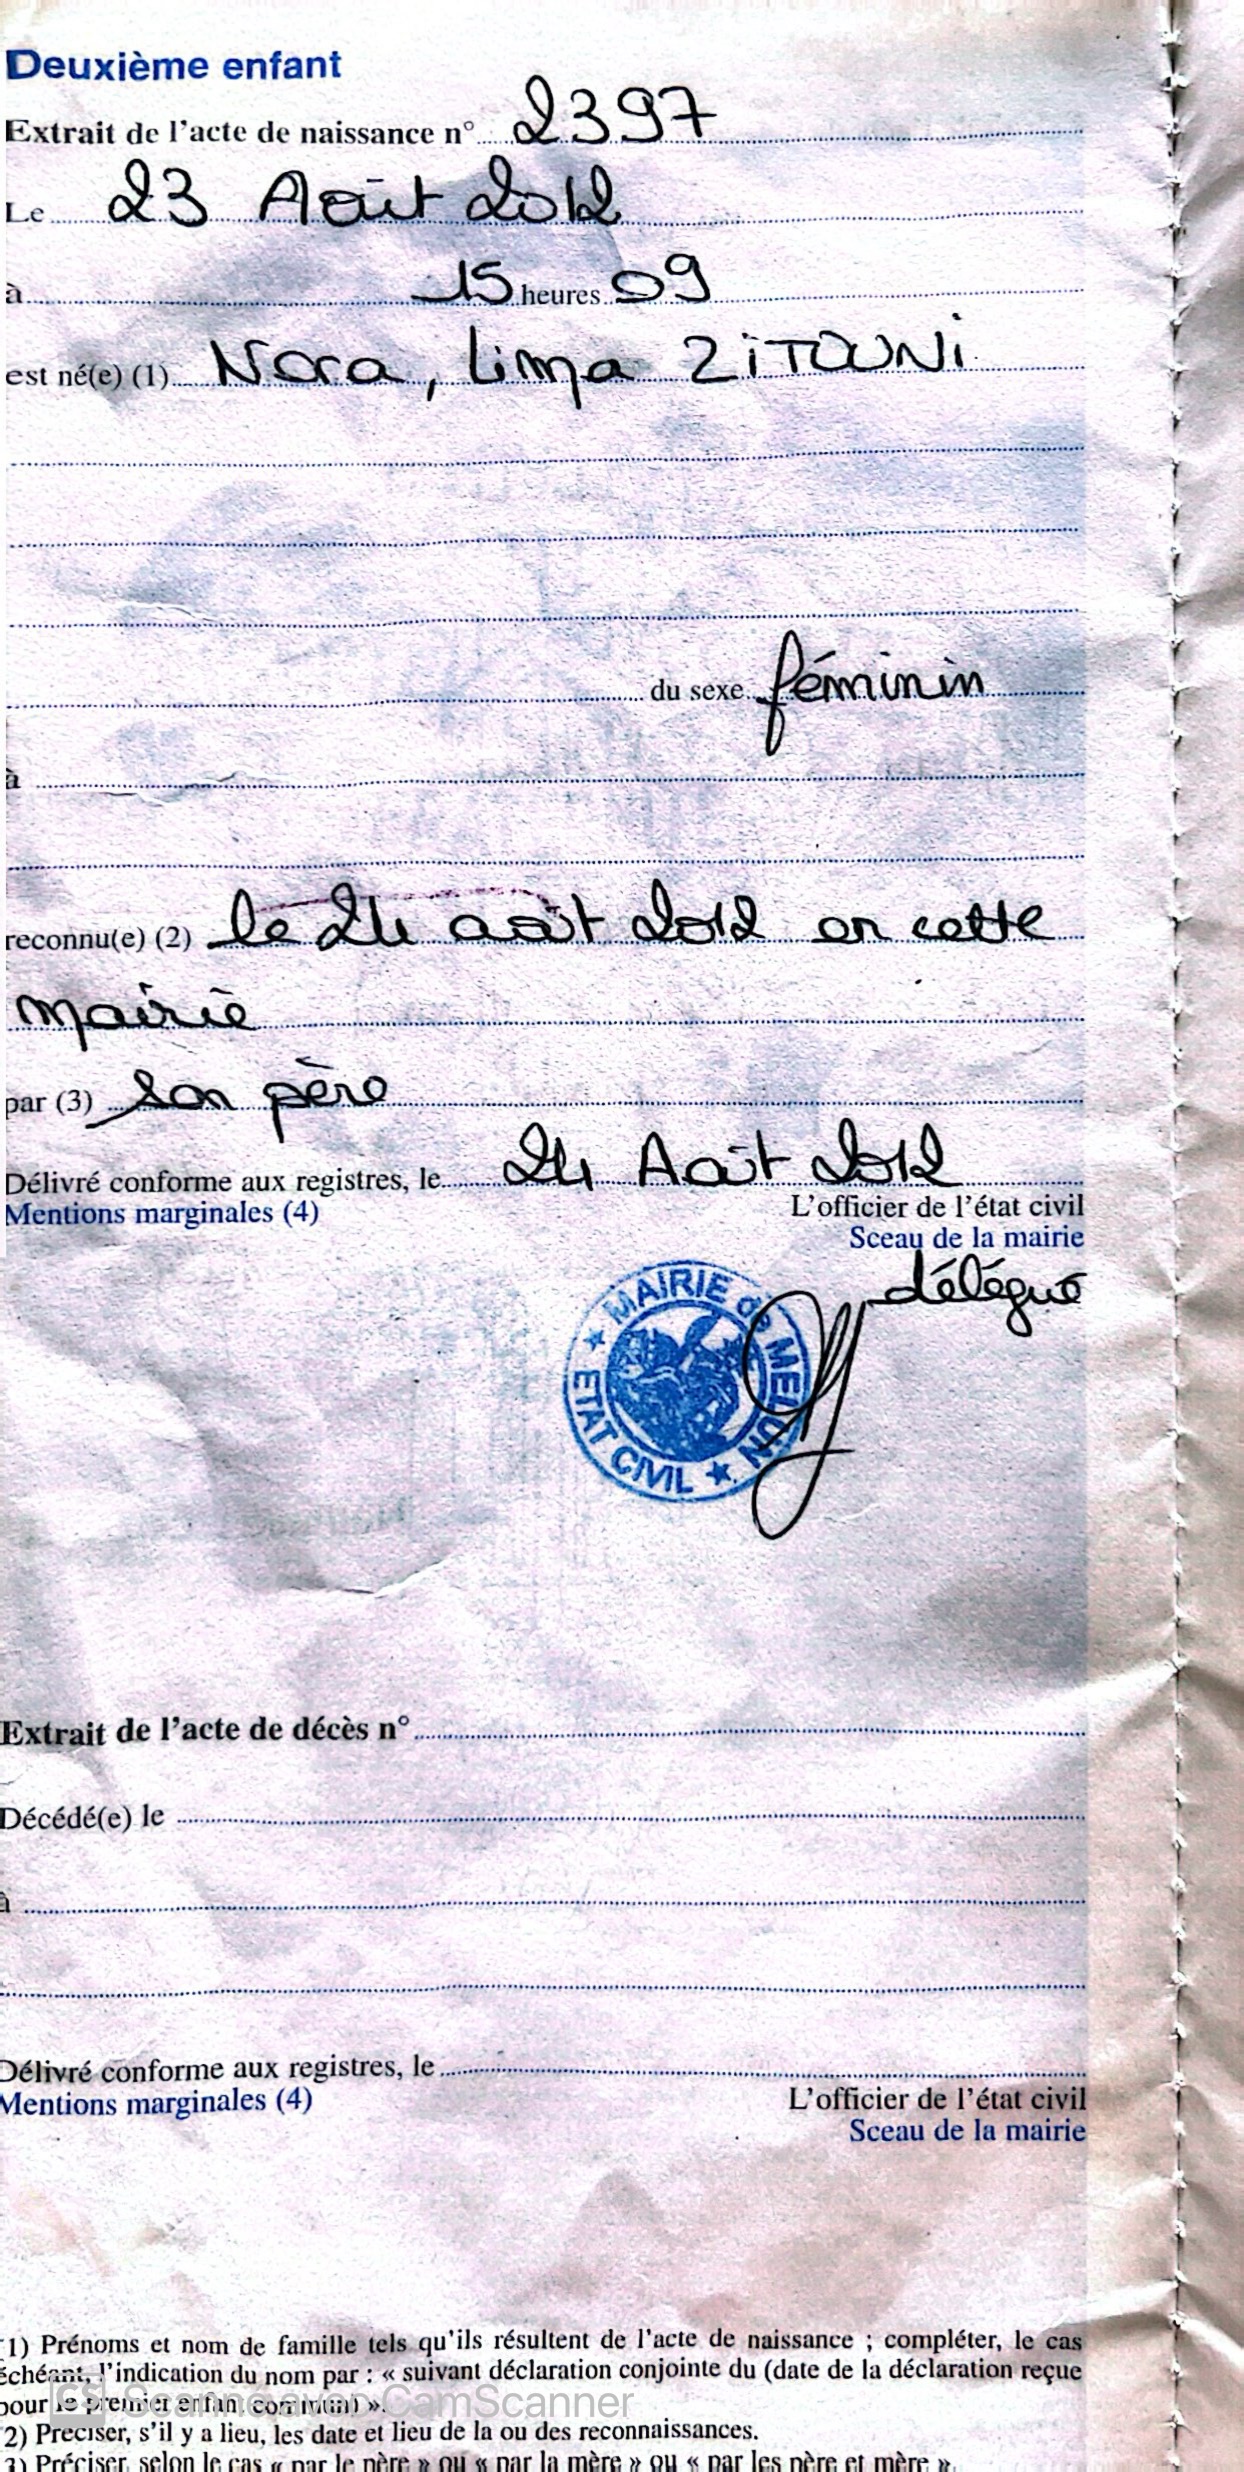 Deuxième enfant
Extrait de l'acte de naissance n° 2397
Le 23 Août 2012
à 15 heures 09
est né(e) (1) Nora, Lima ZiTOUNi
du sexe féminin
à
reconnu(e) (2) le 24 août 2012 en cette
mairie
par (3) son père
Délivré conforme aux registres, le 24 Août 2012
Mentions marginales (4) L'officier de l'état civil
Sceau de la mairie
délégué
MAIRIE de MELUN
ETAT CIVIL
Extrait de l'acte de décès n°
Décédé(e) le
à
Délivré conforme aux registres, le
Mentions marginales (4) L'officier de l'état civil
Sceau de la mairie
(1) Prénoms et nom de famille tels qu'ils résultent de l'acte de naissance ; compléter, le cas
échéant, l'indication du nom par : « suivant déclaration conjointe du (date de la déclaration reçue
pour le premier enfant commun) ».
CS Scanné avec CamScanner
2) Préciser, s'il y a lieu, les date et lieu de la ou des reconnaissances.
3) Préciser, selon le cas « par le père » ou « par la mère » ou « par les père et mère ».